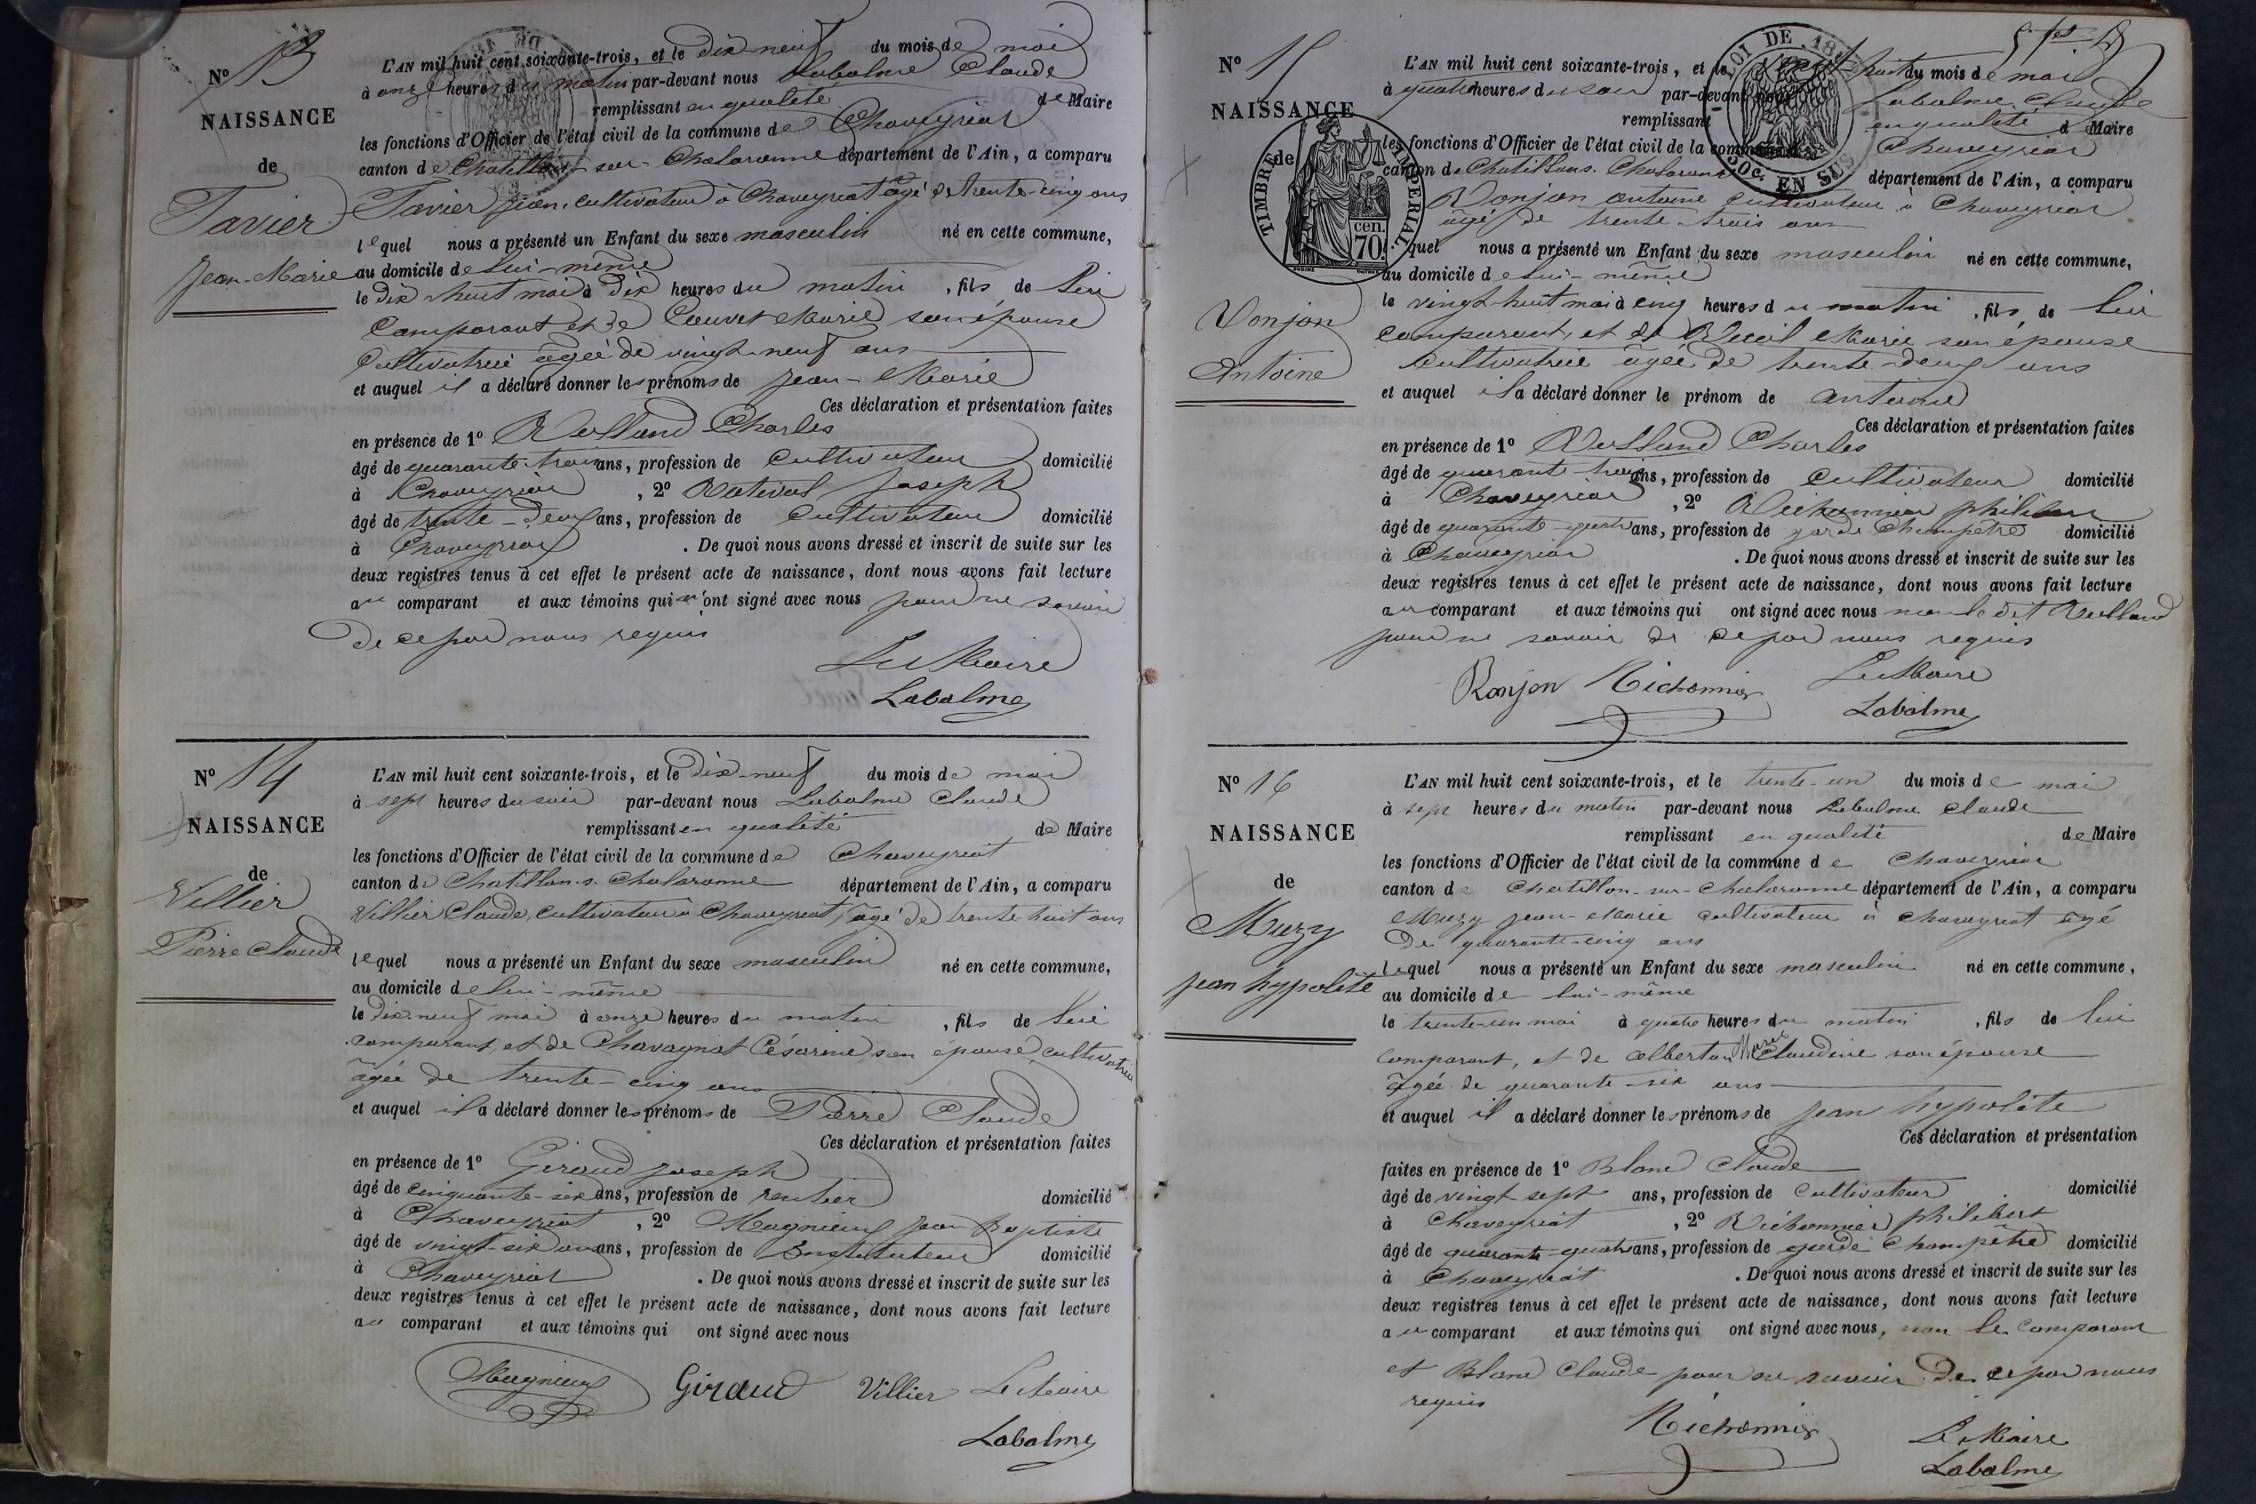 N° 13
NAISSANCE
de
Tavier
Jean-Marie
L'AN mil huit cent soixante-trois, et le dix-neuf du mois de mai
à onze heures du matin par-devant nous Labalme Claude
remplissant en qualité de Maire
les fonctions d'Officier de l'état civil de la commune de Chaveyriat
canton de Chatillon-sur-Chalaronne département de l'Ain, a comparu
Tavier Jean, cultivateur à Chaveyriat âgé de trente-cinq ans
lequel nous a présenté un Enfant du sexe masculin né en cette commune,
au domicile de lui-même
le dix huit mai à dix heures du matin, fils de lui
comparant et de Marie son épouse
cultivatrice âgée de vingt-neuf ans
et auquel il a déclaré donner les prénoms de Jean-Marie
Ces déclaration et présentation faites
en présence de 1° Rolland Charles
âgé de quarante-trois ans, profession de cultivateur domicilié
à Chaveyriat, 2° Joseph
âgé de trente-deux ans, profession de cultivateur domicilié
à Chaveyriat. De quoi nous avons dressé et inscrit de suite sur les
deux registres tenus à cet effet le présent acte de naissance, dont nous avons fait lecture
au comparant et aux témoins qui n'ont signé avec nous pour ne savoir
de ce par nous requis
Le Maire
Labalme
N° 14
NAISSANCE
de
Villier
Pierre Claude
L'AN mil huit cent soixante-trois, et le dix-neuf du mois de mai
à sept heures du soir par-devant nous Labalme Claude
remplissant en qualité de Maire
les fonctions d'Officier de l'état civil de la commune de Chaveyriat
canton de Chatillon-s-Chalaronne département de l'Ain, a comparu
Villier Claude, cultivateur à Chaveyriat, âgé de trente huit ans
lequel nous a présenté un Enfant du sexe masculin né en cette commune,
au domicile de lui-même
le dix-neuf mai à onze heures du matin, fils de lui
comparant, et de Chavagnat Césarine son épouse, cultivatrice
âgée de trente-cinq ans
et auquel il a déclaré donner les prénoms de Pierre Claude
Ces déclaration et présentation faites
en présence de 1° Giraud Joseph
âgé de cinquante-six ans, profession de rentier domicilié
à Chaveyriat, 2° Magnieux Jean Baptiste
âgé de vingt-six ans ans, profession de Instituteur domicilié
à Chaveyriat. De quoi nous avons dressé et inscrit de suite sur les
deux registres tenus à cet effet le présent acte de naissance, dont nous avons fait lecture
au comparant et aux témoins qui ont signé avec nous
Magnieux Giraud Villier Le Maire
Labalme
N° 15
NAISSANCE
de
TIMBRE IMPERIAL
70 cen.
LOI DE 18
50c. EN SUS
Antoine
L'AN mil huit cent soixante-trois, et le vingt huit du mois de mai
à quatre heures du soir par-devant nous Labalme Claude
remplissant en qualité de Maire
les fonctions d'Officier de l'état civil de la commune de Chaveyriat
canton de Chatillon s. Chalaronne département de l'Ain, a comparu
Ronjon antoine cultivateur à Chaveyriat
âgé de trente-trois ans
quel nous a présenté un Enfant du sexe masculin né en cette commune,
au domicile de lui-même
le vingt-huit mai à cinq heures du matin, fils de lui
comparant, et de Marie son épouse
cultivatrice âgée de trente-deux ans
et auquel il a déclaré donner le prénom de antoine
Ces déclaration et présentation faites
en présence de 1° Rolland Charles
âgé de quarante-trois ans, profession de cultivateur domicilié
à Chaveyriat, 2° Richonnier philibert
âgé de quarante-quatre ans, profession de garde Champêtre domicilié
à Chaveyriat. De quoi nous avons dressé et inscrit de suite sur les
deux registres tenus à cet effet le présent acte de naissance, dont nous avons fait lecture
au comparant et aux témoins qui ont signé avec nous non le dit Rolland
pour ne savoir de ce par nous requis
Ronjon Richonnier Le Maire
Labalme
N° 16
NAISSANCE
de
Muzy
jean hypolite
L'AN mil huit cent soixante-trois, et le trente-un du mois de mai
à sept heures du matin par-devant nous Labalme Claude
remplissant en qualité de Maire
les fonctions d'Officier de l'état civil de la commune de Chaveyriat
canton de Chatillon-sur-Chalaronne département de l'Ain, a comparu
Muzy jean-Marie cultivateur à Chaveyriat âgé
de quarante-cinq ans
lequel nous a présenté un Enfant du sexe masculin né en cette commune,
au domicile de lui-même
le trente-un mai à quatre heures du matin, fils de lui
comparant, et de Alberton Marie Claudine son épouse
âgée de quarante-six ans
et auquel il a déclaré donner les prénoms de jean hypolite
Ces déclaration et présentation
faites en présence de 1° Blanc Claude
âgé de vingt sept ans, profession de cultivateur domicilié
à Chaveyriat, 2° Richonnier philibert
âgé de quarante-quatre ans, profession de garde Champêtre domicilié
à Chaveyriat. De quoi nous avons dressé et inscrit de suite sur les
deux registres tenus à cet effet le présent acte de naissance, dont nous avons fait lecture
au comparant et aux témoins qui ont signé avec nous, non le comparant
et Blanc Claude pour ne savoir de ce par nous
requis
Richonnier Le Maire
Labalme